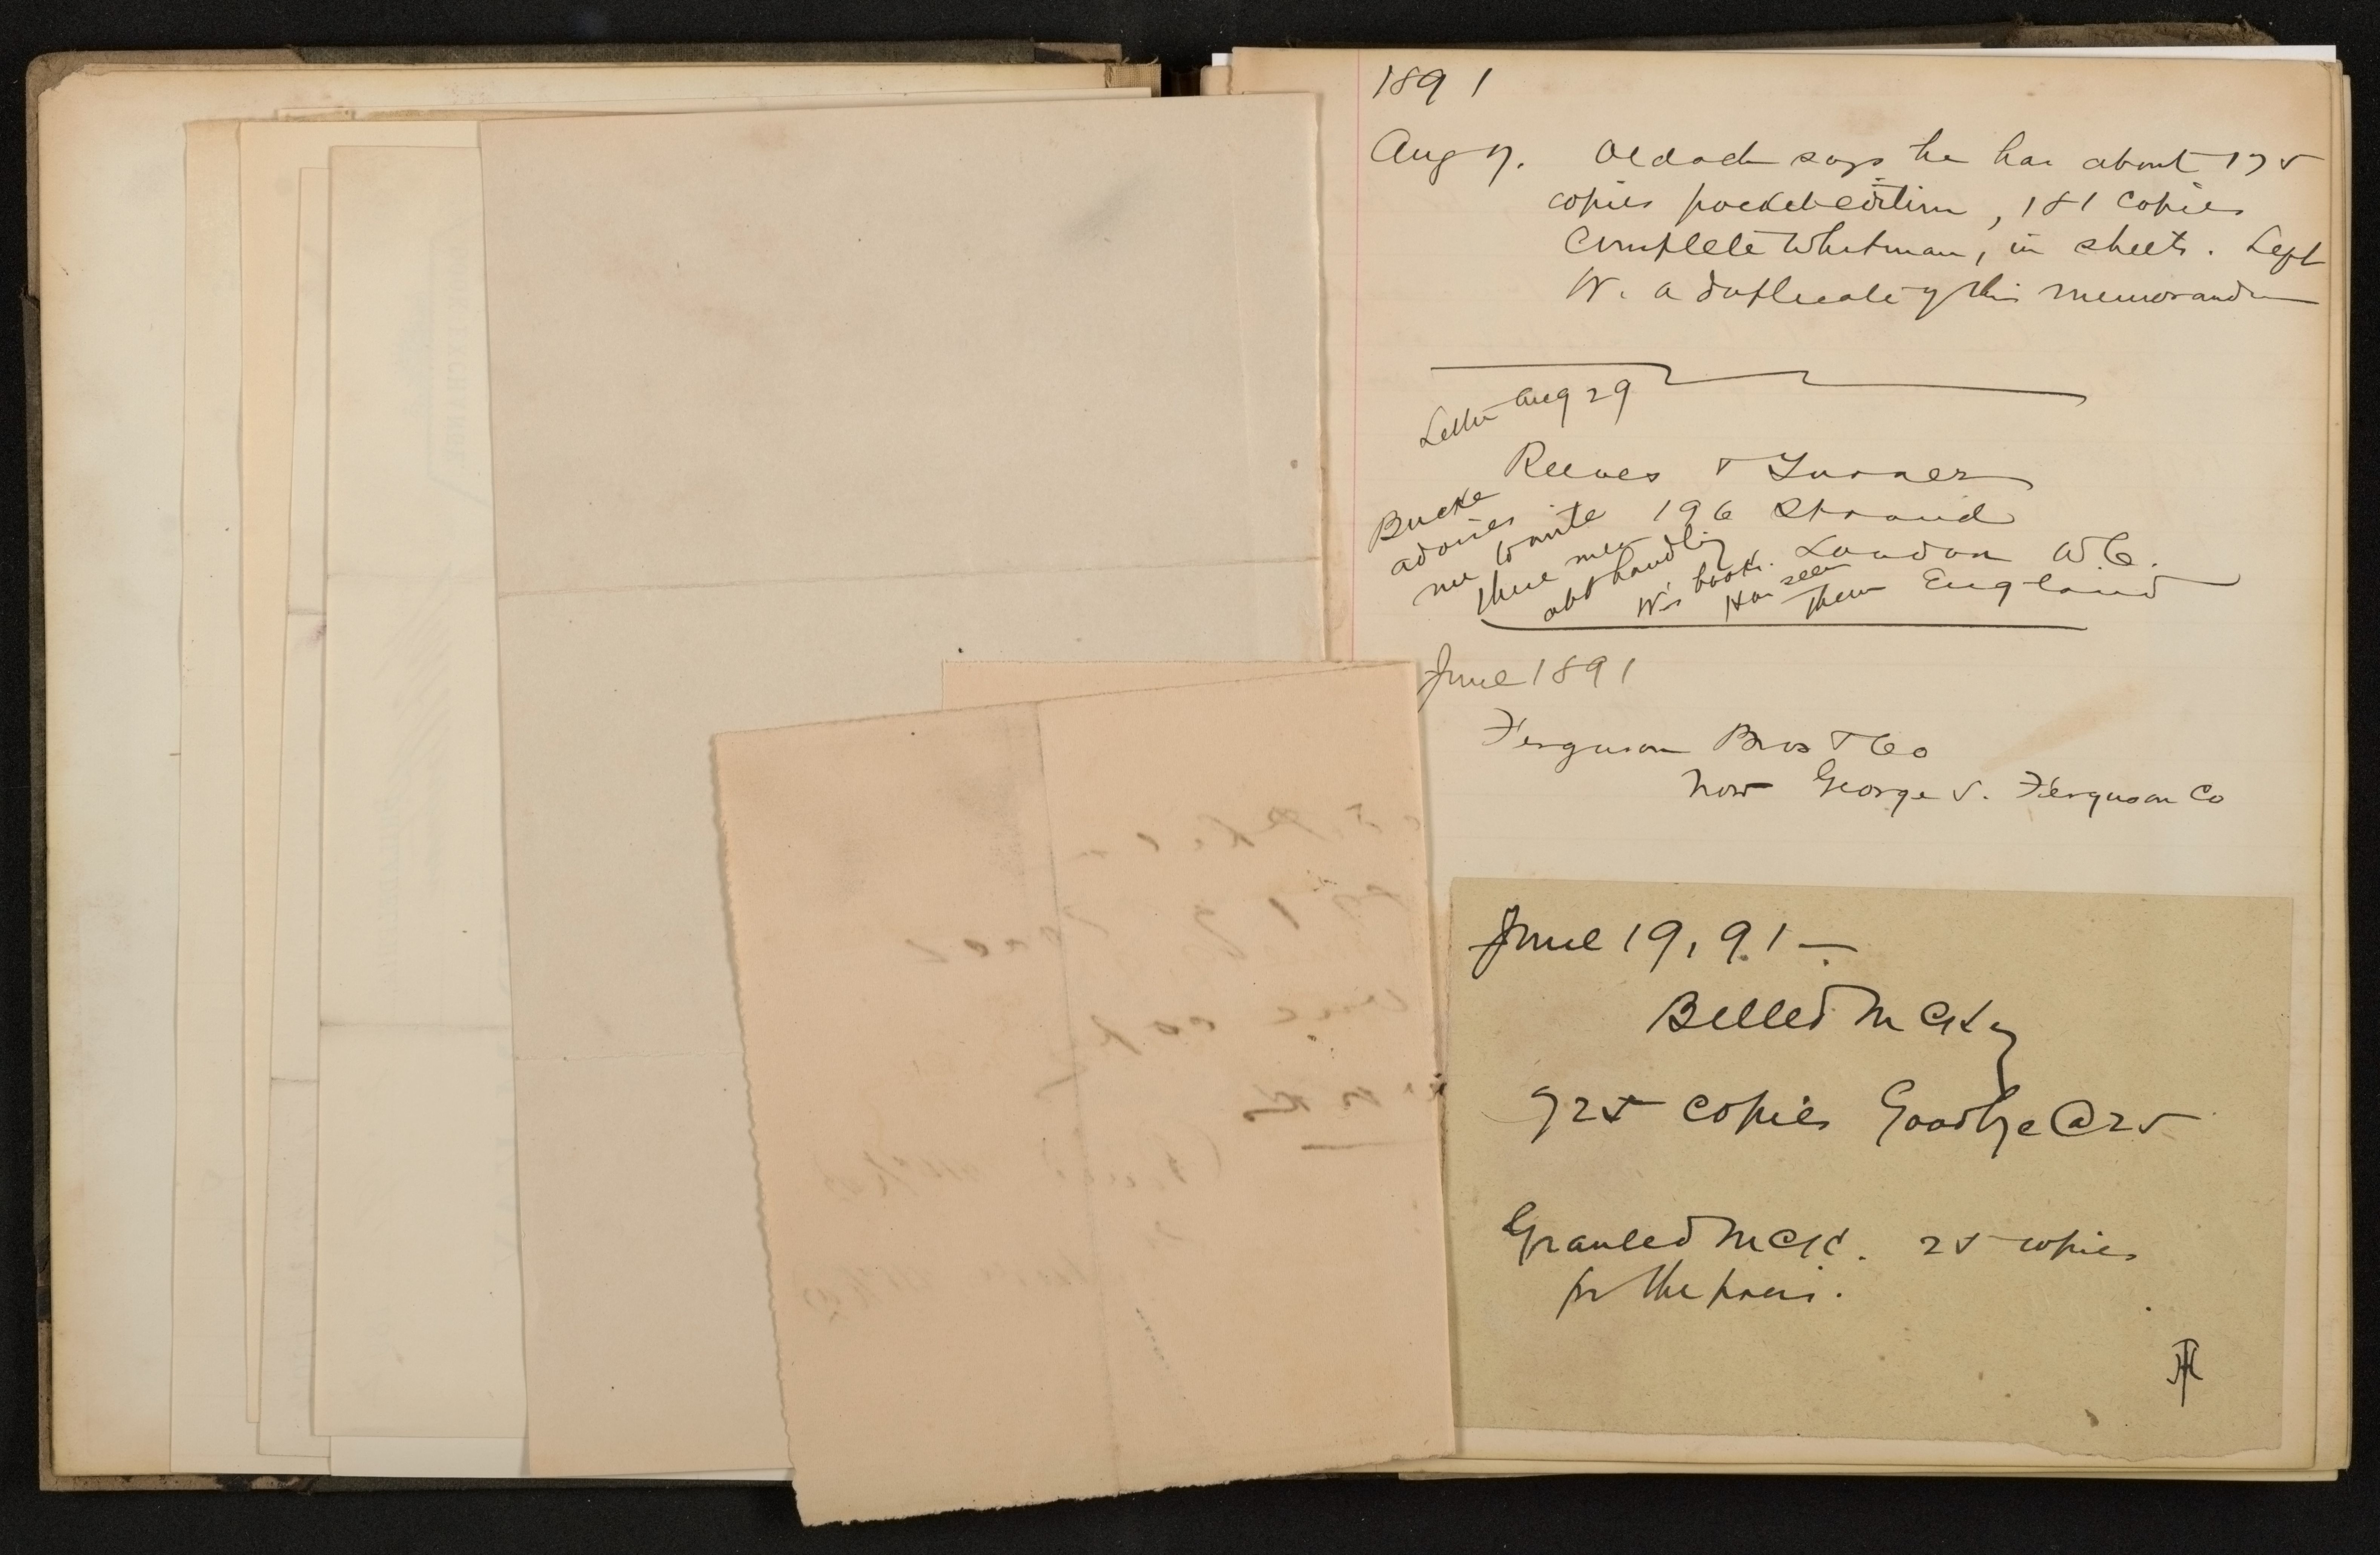 1891
Aug 7. Oldach says he has about 175
copies pocket edition, 181 copies
Complete Whitman, in sheets. Left
W. a duplicate of this memorandum
Letter Aug 29
Reeves & Turner
196 Strand
London W.C.
England
Bucke
advises
me write
these men
abt handling
W's books.
Has seen
them
June 1891
Ferguson Bros & Co
now George S. Ferguson Co
June 19, 91 —
Billed McKy
725 copies Goodbye @ 25
Granted McK. 25 copies
for the press.